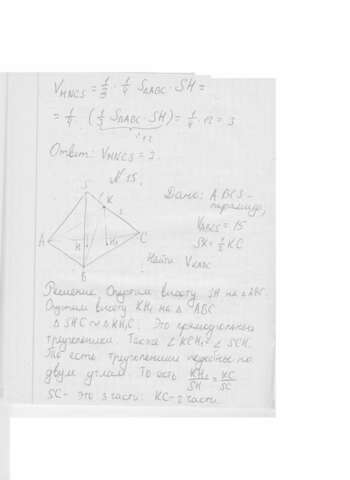 V_MNCS = 1/3 · 1/4 S△ABC · SH =
= 1/4 · (1/3 S△ABC · SH) = 1/4 · 12 = 3
12
Ответ: V_MNCS = 3.
№ 15.
S
K
A
H
H₁
C
B
Дано: ABCS –
пирамида,
V_ABCS = 15
SK = 1/2 KC
Найти V_KABC
Решение. Опустим высоту SH на △ABC.
Опустим высоту KH₁ на △ ABC
△ SHC ∾ △ KH₁C. Это прямоугольные
треугольники. Также ∠ KCH₁ = ∠ SCH.
То есть треугольники подобны по
двум углам. То есть KH₁/SH = KC/SC
SC – это 3 части; KC – 2 части.